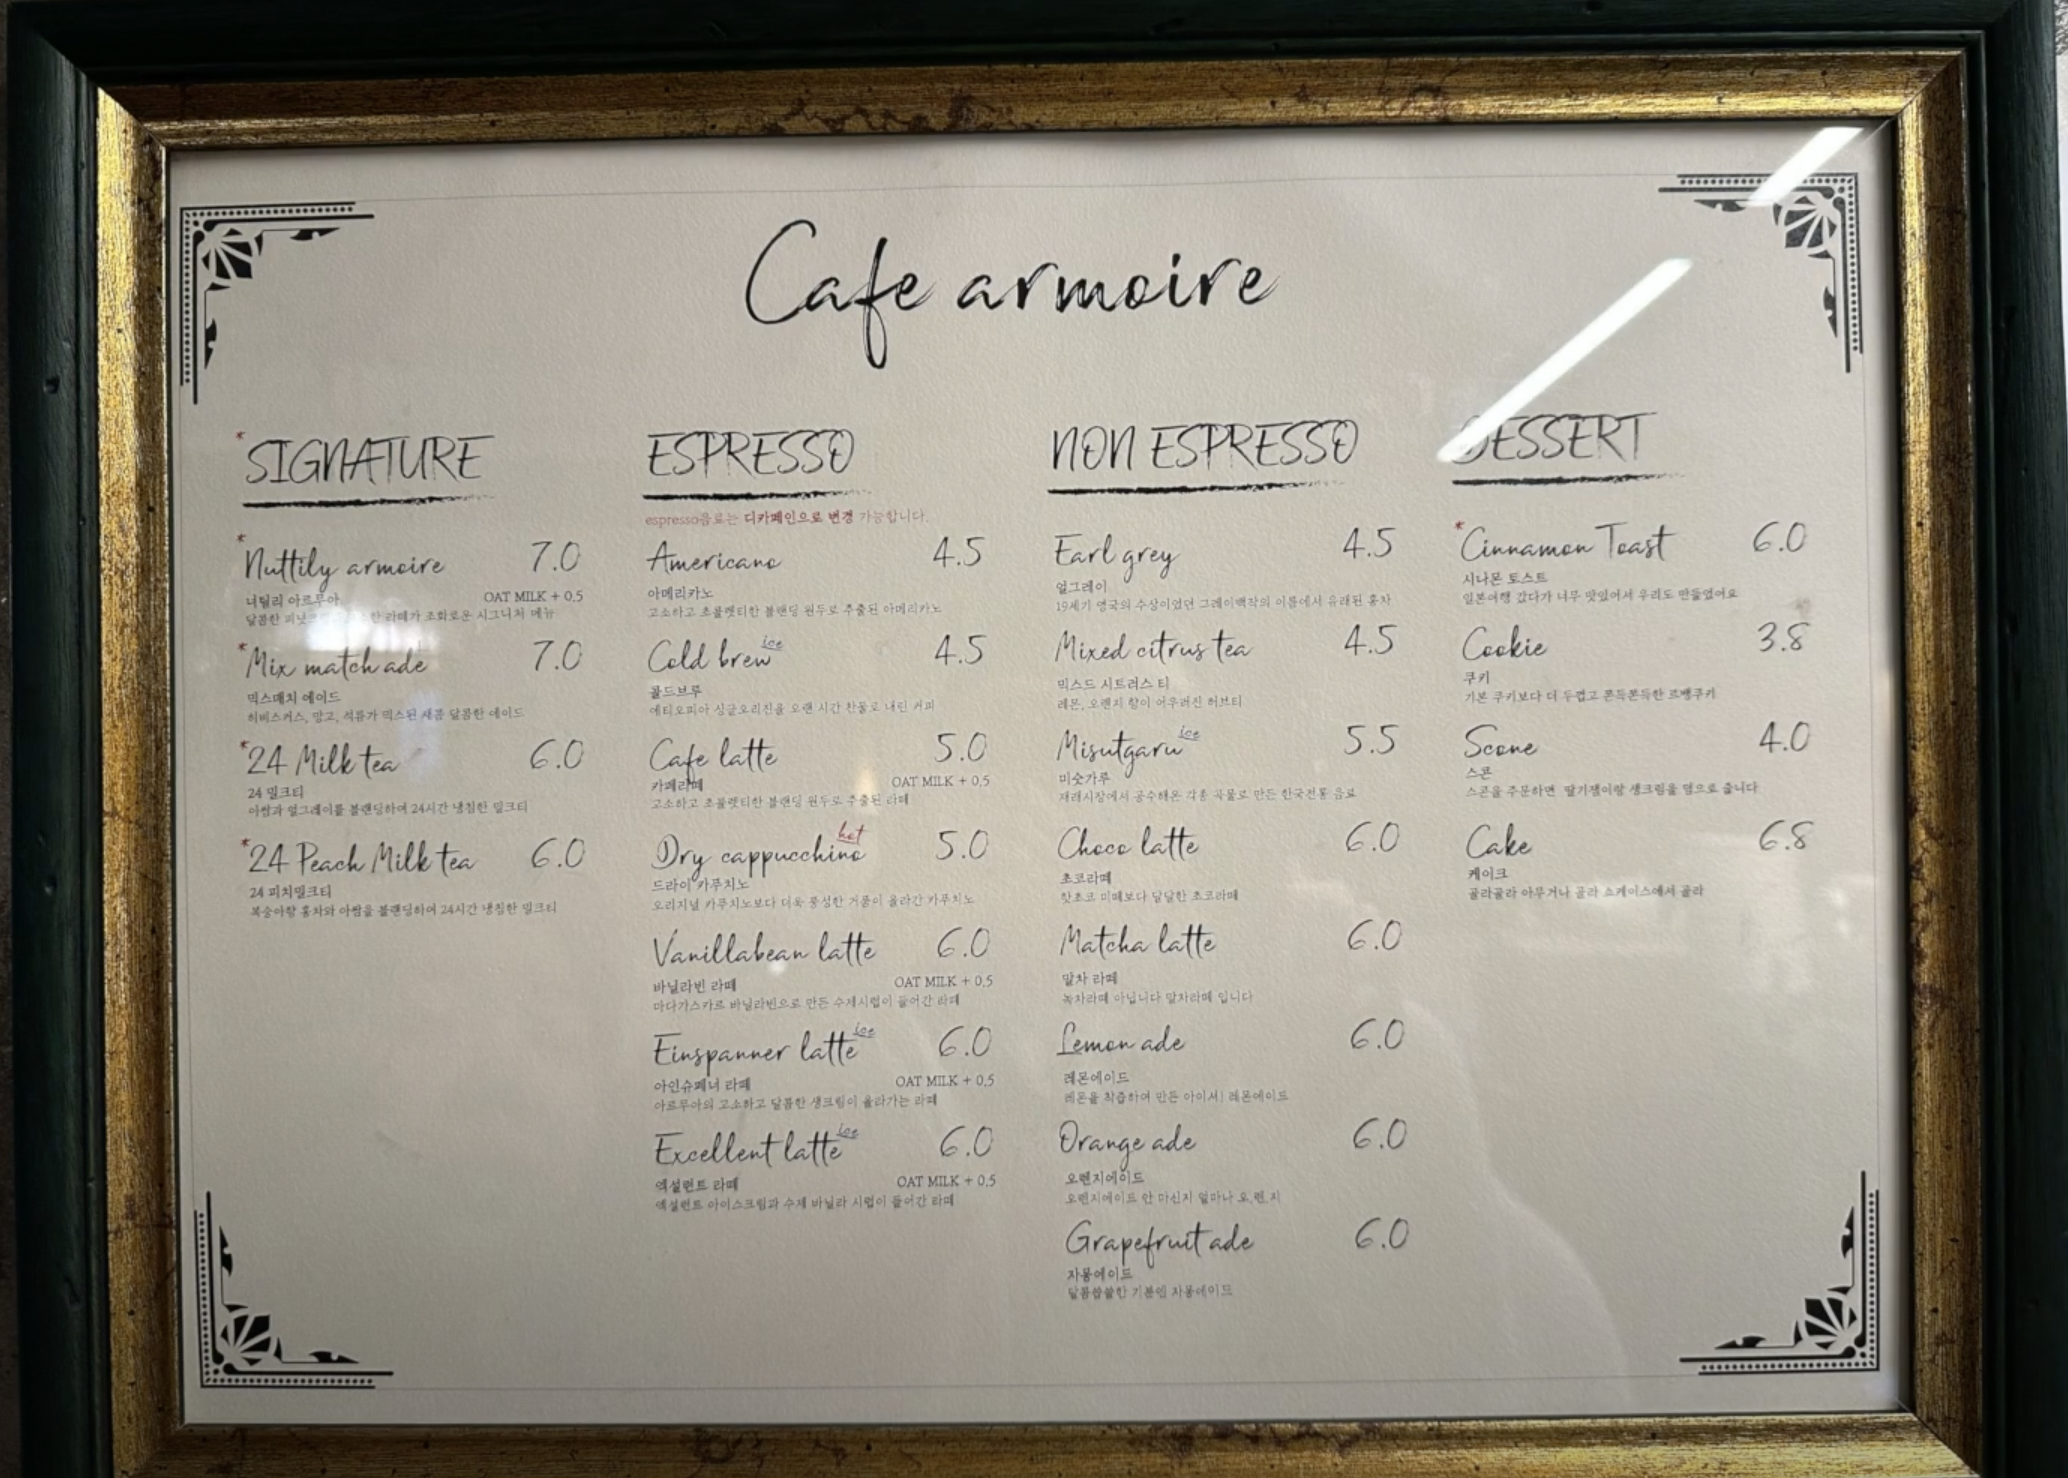 Cafe armoire
*SIGNATURE
*Nuttily armoire 7.0
너틸리 아르무아 OAT MILK + 0.5
달콤한 라떼가 조화로운 시그니처 메뉴
*Mix match ade 7.0
믹스매치 에이드
히비스커스, 망고, 석류가 믹스된 새콤 달콤한 에이드
*24 Milk tea 6.0
24 밀크티
아쌈과 얼그레이를 블랜딩하여 24시간 냉침한 밀크티
*24 Peach Milk tea 6.0
24 피치밀크티
복숭아향 홍차와 아쌈을 블랜딩하여 24시간 냉침한 밀크티
ESPRESSO
espresso음료는 디카페인으로 변경 가능합니다.
Americano 4.5
아메리카노
고소하고 초콜렛티한 블랜딩 원두로 추출된 아메리카노
Cold brew ice 4.5
콜드브루
에티오피아 싱글오리진을 오랜 시간 찬물로 내린 커피
Cafe latte 5.0
카페라떼 OAT MILK + 0.5
고소하고 초콜렛티한 블랜딩 원두로 추출된 라떼
Dry cappucchino hot 5.0
드라이 카푸치노
오리지널 카푸치노보다 더욱 풍성한 거품이 올라간 카푸치노
Vanillabean latte 6.0
바닐라빈 라떼 OAT MILK + 0.5
마다가스카르 바닐라빈으로 만든 수제시럽이 들어간 라떼
Einspanner latte ice 6.0
아인슈페너 라떼 OAT MILK + 0.5
아르무아의 고소하고 달콤한 생크림이 올라가는 라떼
Excellent latte ice 6.0
엑설런트 라떼 OAT MILK + 0.5
엑설런트 아이스크림과 수제 바닐라 시럽이 들어간 라떼
NON ESPRESSO
Earl grey 4.5
얼그레이
19세기 영국의 수상이었던 그레이백작의 이름에서 유래된 홍차
Mixed citrus tea 4.5
믹스드 시트러스 티
레몬, 오렌지 향이 어우러진 허브티
Misutgaru ice 5.5
미숫가루
재래시장에서 공수해온 각종 곡물로 만든 한국전통 음료
Choco latte 6.0
초코라떼
핫초코 미떼보다 달달한 초코라떼
Matcha latte 6.0
말차 라떼
녹차라떼 아닙니다 말차라떼 입니다
Lemon ade 6.0
레몬에이드
레몬을 착즙하여 만든 아이셔! 레몬에이드
Orange ade 6.0
오렌지에이드
오렌지에이드 안 마신지 얼마나 오.렌.지
Grapefruit ade 6.0
자몽에이드
달콤쌉쌀한 기분엔 자몽에이드
DESSERT
*Cinnamon Toast 6.0
시나몬 토스트
일본여행 갔다가 너무 맛있어서 우리도 만들었어요
Cookie 3.8
쿠키
기본 쿠키보다 더 두껍고 쫀득쫀득한 르뱅쿠키
Scone 4.0
스콘
스콘을 주문하면 딸기잼이랑 생크림을 덤으로 줍니다
Cake 6.8
케이크
골라골라 아무거나 골라 쇼케이스에서 골라